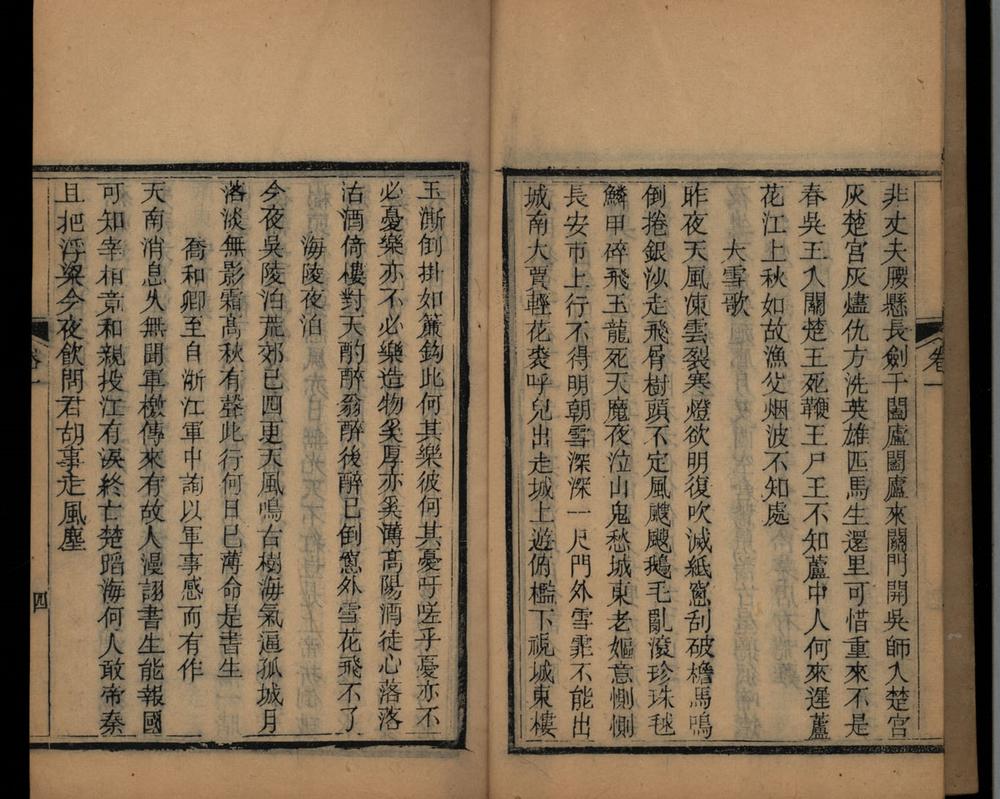 非丈夫腰懸長劍干闔廬闔廬來闢門開吳師入楚宮
灰楚宮灰燼仇方洗英雄匹馬生還里可惜重來不是
春吳王入關楚王死鞭王尸王不知蘆中人何來遲蘆
花江上秋如故漁父烟波不知處
大雪歌
昨夜天風凍雲裂寒燈欲明復吹滅紙窻刮破檐馬鳴
倒捲銀沙走飛骨樹頭不定風颼颼鵝毛亂滾珍珠毬
鱗甲碎飛玉龍死天魔夜泣山鬼愁城東老嫗意惻惻
長安市上行不得明朝雪深深一尺門外雪霏不能出
城南大賈輕花裘呼兒出走城上遊俯檻下視城東樓
卷一
玉澌倒掛如簾鈎此何其樂彼何其憂吁嗟乎憂亦不
必憂樂亦不必樂造物奚厚亦奚薄高陽酒徒心落落
沽酒倚樓對天酌醉翁醉後醉已倒窻外雪花飛不了
海陵夜泊
今夜吳陵泊荒郊已四更天風鳴古樹海氣逼孤城月
落淡無影霜高秋有聲此行何日已薄命是書生
喬和卿至自浙江軍中詢以軍事感而有作
天南消息久無聞軍檄傳來有故人漫詡書生能報國
可知宰相竟和親投江有淚終亡楚蹈海何人敢帝秦
且把浮梁今夜飲問君胡事走風塵
卷一
四